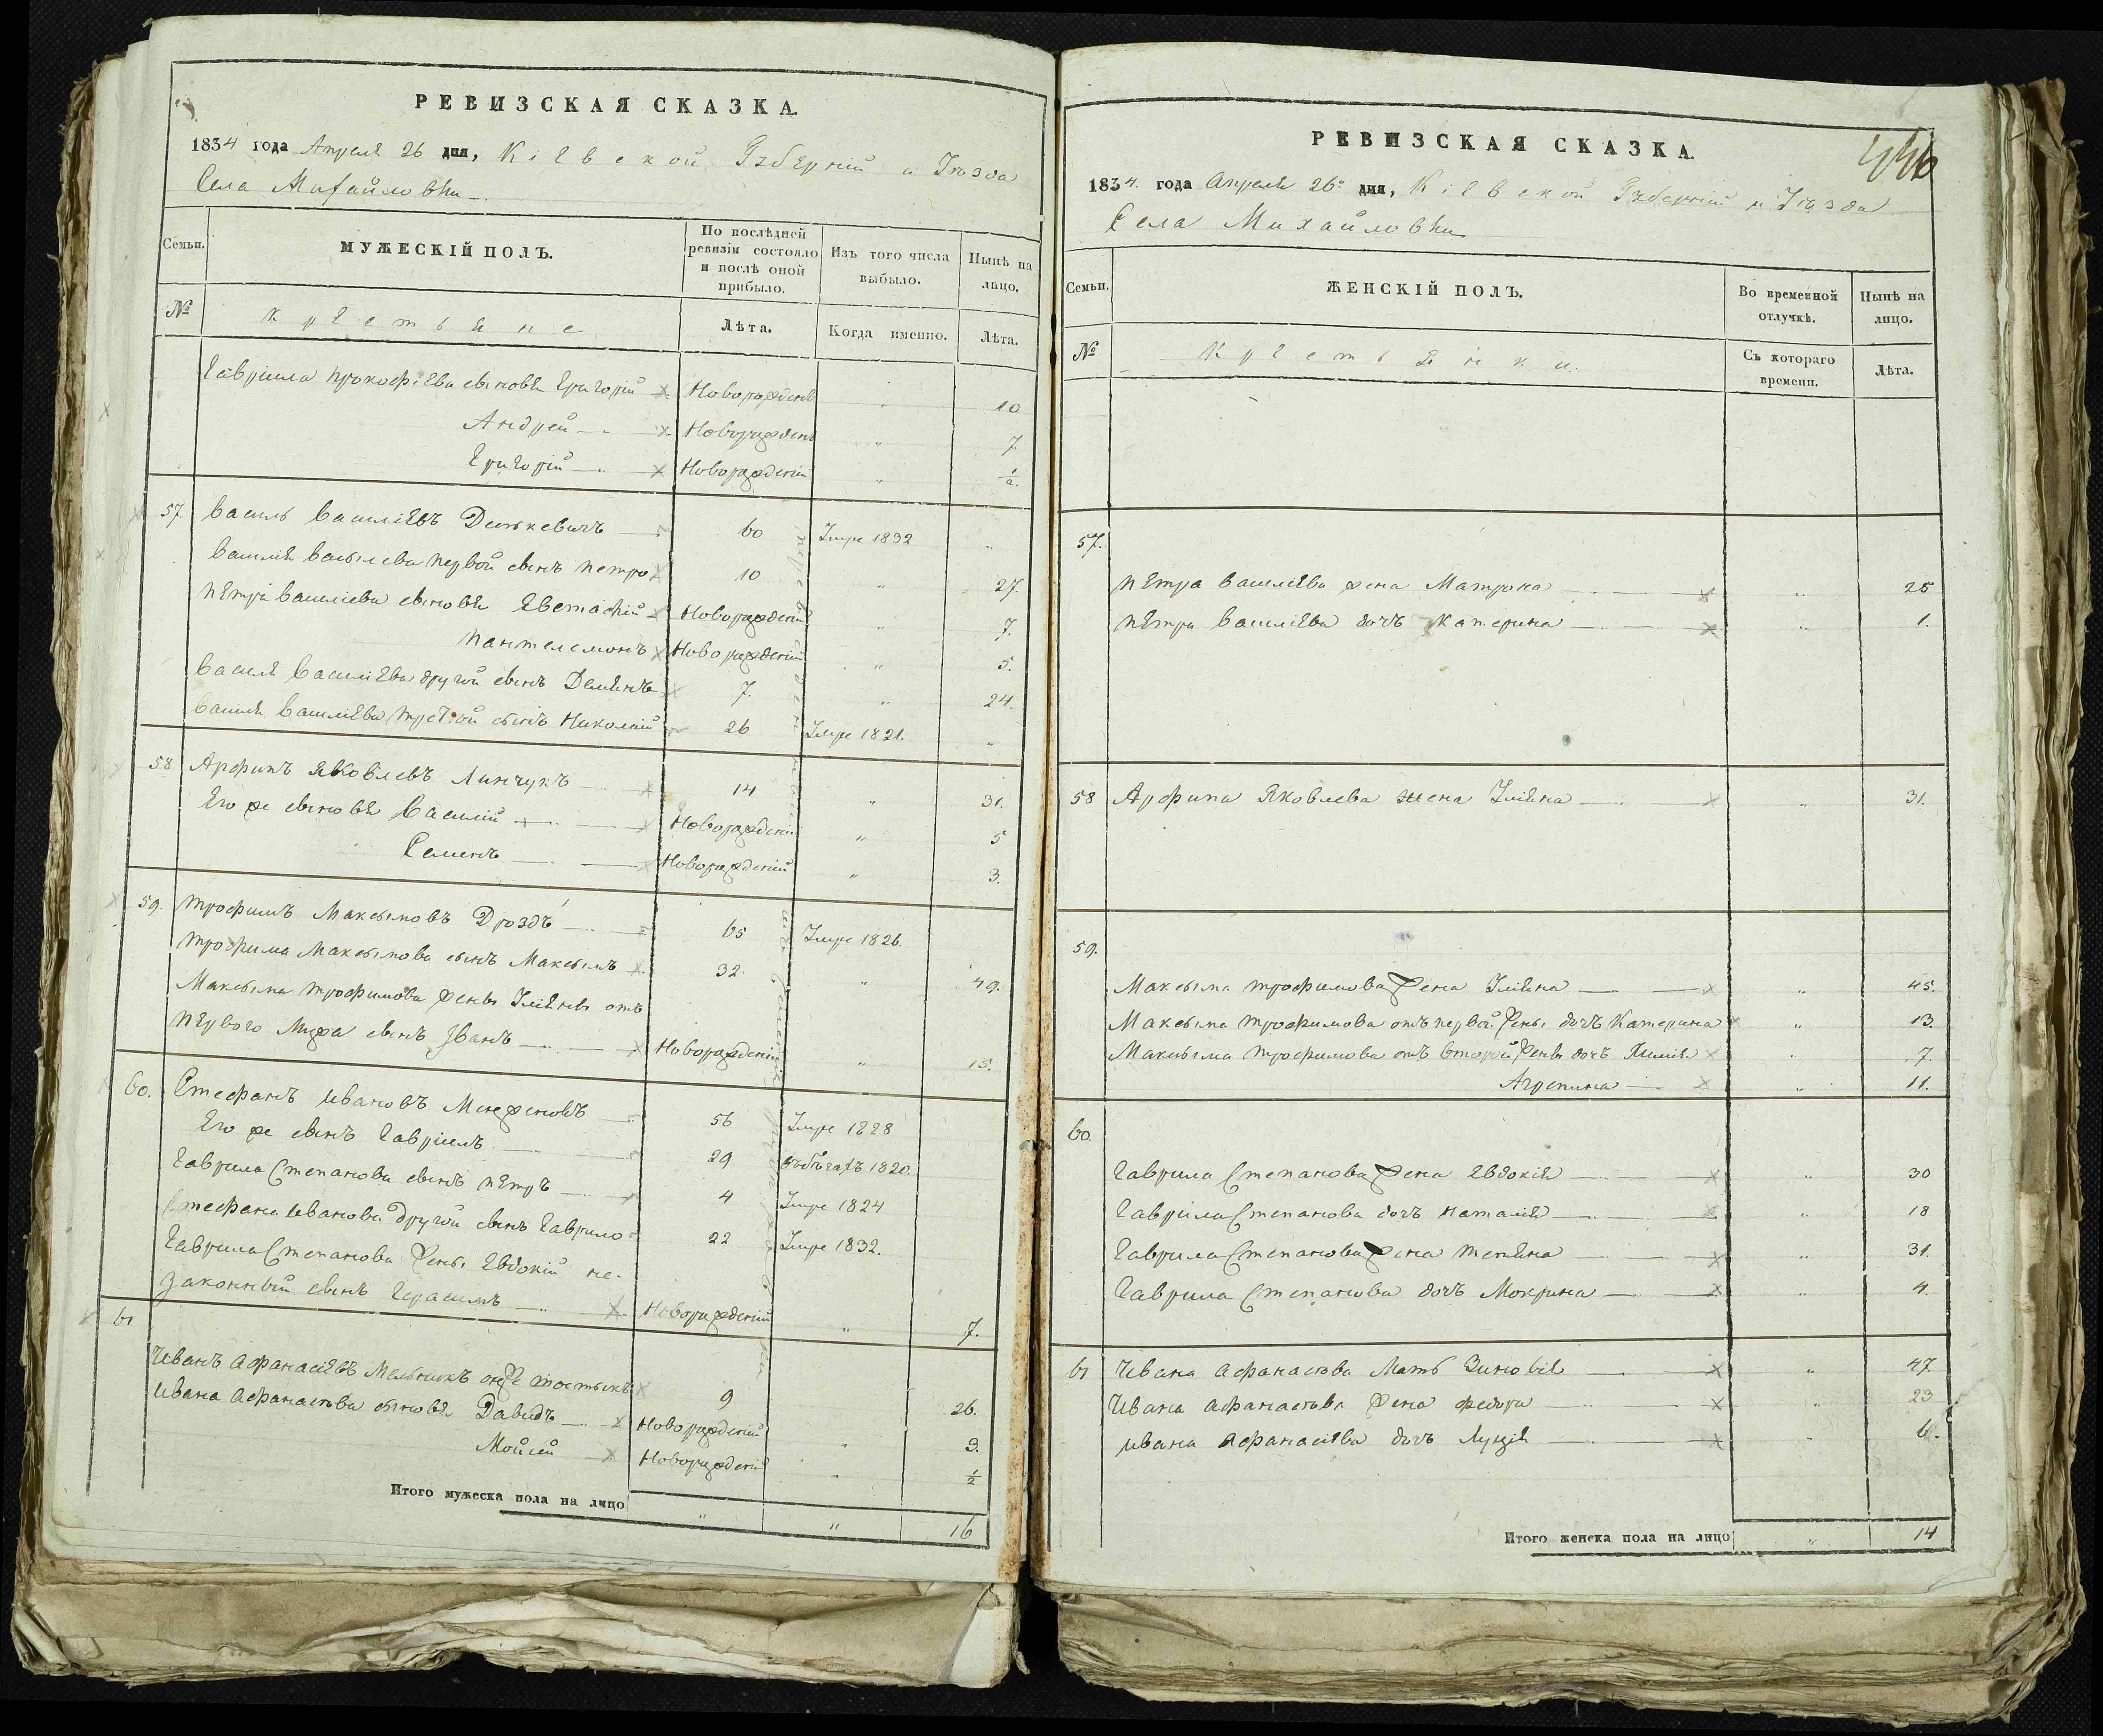 РЕВИЗСКАЯ СКАЗКА.
1834 года Апреля 26 дня, Кіевской Губерніи и Уезда
Села Михайловки
Семьи. МУЖЕСКІЙ ПОЛЪ. По послѣдней ревизіи состояло и послѣ оной прибыло. Изъ того числа выбыло. Нынѣ на лицо.
№ Крестьяне Лѣта. Когда именно. Лѣта.
Гавріила Прокофіева сыновя Григорій Новорожденъ " 10
Андрей Новорожденъ " 7
Григорій Новорожденій " 1/2
57 Василь Василіевъ 60 Умре 1832 "
Василя Васылева первой сынъ Петро 10 " 27.
Петра Василіева сыновя Евстафій Новорожденій " 7.
Пантелемонъ Новорожденій " 5.
Василя Василіева другой сынъ Демянъ 7. " 24.
Василя Василіева третой сынъ Николай 26 Умре 1821. "
58 Арфипъ Яковлевъ Линчукъ 14 " 31.
Его же сыновя Василій Новорожденій " 5
Семенъ Новорожденій " 3.
59. Трофимъ Максымовъ Дроздъ 65 Умре 1826.
Трофима Максымова сынъ Максымъ 32. " 49.
Максыма Трофимова жены Уліяны отъ
первого мужа сынъ Іванъ Новорожденій " 15.
60. Стефанъ Ивановъ 56 Умре 1828
Его же сынъ Гавріилъ 29 въ бѣгахъ 1820.
Гаврила Степанова сынъ Петръ 4 Умре 1824
Стефана Иванова другой сынъ Гаврило 22 Умре 1832.
Гаврила Степанова жены Евдокіи не-
законный сынъ Герасимъ Новорожденій " 7.
61
Иванъ Афанасіевъ Мельникъ онже 9 26.
Ивана Афанасьева сыновя Давидъ Новорожденій " 3.
Мойсей Новорожденій " 1/2
Итого мужеска пола на лицо " " 16
РЕВИЗСКАЯ СКАЗКА.
446
1834. года Апреля 26го дня, Кіевской Губерніи и Уезда
Села Михайловки
Семьи. ЖЕНСКІЙ ПОЛЪ. Во временной отлучкѣ. Нынѣ на лицо.
№ Крестьянки. Съ котораго времени. Лѣта.
57.
Петра Василіева жена Матрона " 25
Петра Василіева дочъ Катерина " 1.
58 Арфипа Яковлева жена Уліяна " 31.
59.
Максыма Трофимова жена Уліяна " 45.
Максыма Трофимова отъ первой жены дочъ Катерина " 13.
Максыма Трофимова отъ второй жены дочъ " 7.
Агрепина " 11.
60.
Гаврила Степанова жена Евдокія " 30
Гаврила Степанова дочъ Наталія " 18
Гаврила Степанова жена Тетяна " 31.
Гаврила Степанова дочъ Мокрина " 4.
61 Ивана Афанасьева мать Зиновія " 47.
Ивана Афанасьева жена Федора " 23
Ивана Афанасіева дочъ Луція " 6.
Итого женска пола на лицо " 14